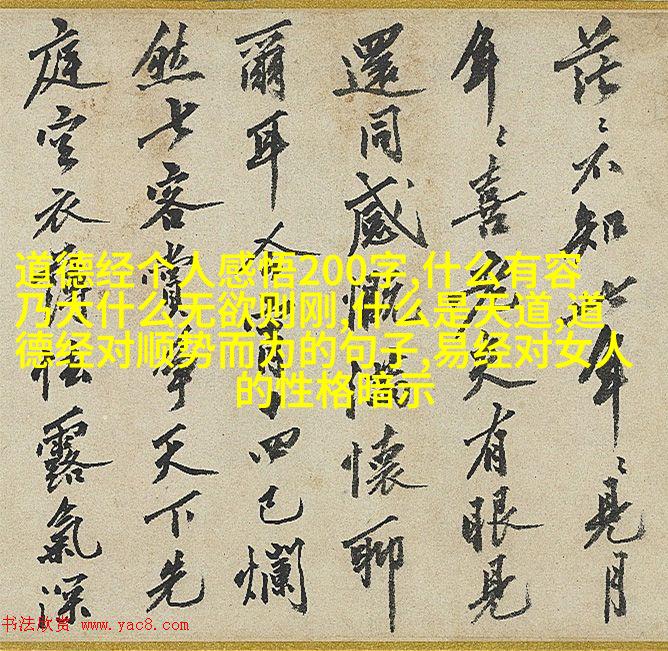 茫〻不知年〻見月
年〻喜天有眼見
還同感慨滿懷聊
爾耳人四已爛
然七客賞爭天下先
庭空衣松露氣深
道德经个人感悟200字,什么有容
乃大什么无欲则刚,什么是天道,道
德经对顺势而为的句子,易经对女人
的性格暗示
书法欣赏 www.yac8.com